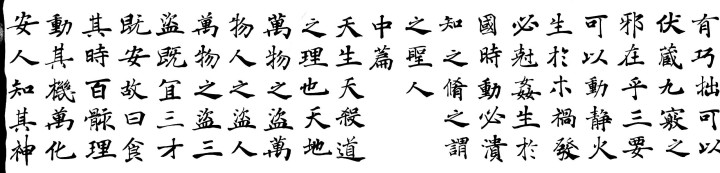 有巧拙可以
伏藏九竅之
邪在乎三要
可以動静火
生於木禍發
必尅姦生於
國時動必潰
知之脩之謂
之聖人
中篇
天生天殺道
之理也天地
萬物之盜萬
物人之盜人
萬物之盜三
盜既宜三才
既安故曰食
其時百骸理
動其機萬化
安人知其神